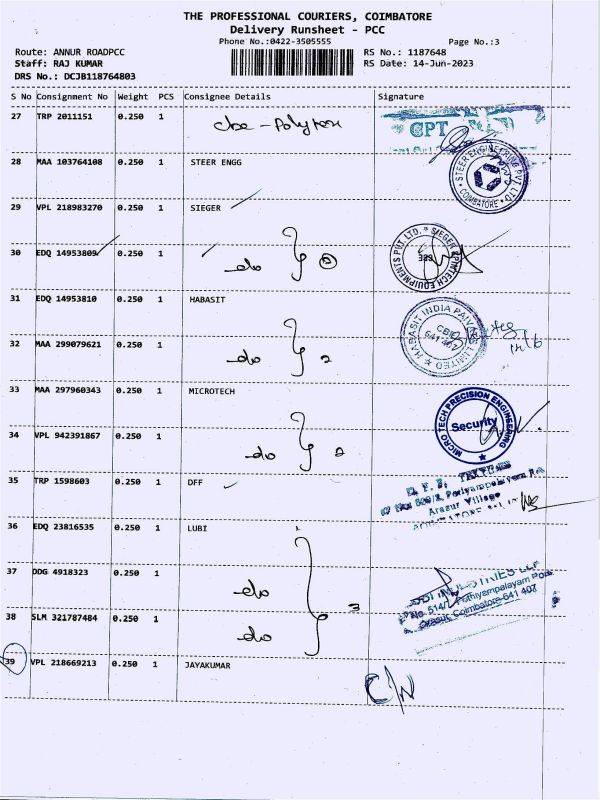 THE PROFESSIONAL COURIERS, COIMBATORE
Delivery Runsheet - PCC
Phone No.:0422-3505555 Page No.:3
Route: ANNUR ROADPCC RS No.: 1187648
Staff: RAJ KUMAR RS Date: 14-Jun-2023
DRS No.: DCJB118764803
S No Consignment No Weight PCS Consignee Details Signature
27 TRP 2011151 0.250 1
CPT
28 MAA 103764108 0.250 1 STEER ENGG
STEER ENGINEERING PVT LTD
COIMBATORE
29 VPL 218983270 0.250 1 SIEGER
30 EDQ 14953809 0.250 1 do 2
31 EDQ 14953810 0.250 1 HABASIT
HABASIT INDIA PRIVATE LIMITED
32 MAA 299079621 0.250 1 do 2
33 MAA 297960343 0.250 1 MICROTECH
MICRO TECH PRECISION ENGINEERING
Security
34 VPL 942391867 0.250 1 do 2
35 TRP 1598603 0.250 1 DFF
Arasur Village
36 EDQ 23816535 0.250 1 LUBI
37 DDG 4918323 0.250 1 do
No 514/1 Pothiyampalayam Post
Arasur, Coimbatore-641 407
38 SLM 321787484 0.250 1 do 3
39 VPL 218669213 0.250 1 JAYAKUMAR C/N